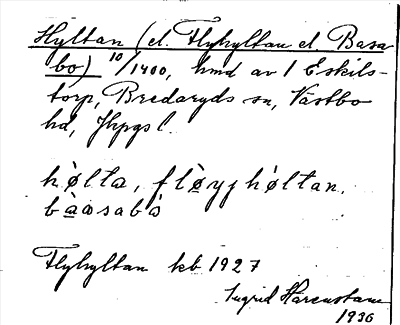 Hyltan (el. Flyhyltan el. Basa
bo) 10/1400, hmd av 1 Eskils-
torp, Bredaryds sn, Västbo
hd, Jkpgs l.
hø̀lta, flø̀yjhøltan,
bàasabò
Flyhyltan kb 1927
Ingrid Härenstam
1936